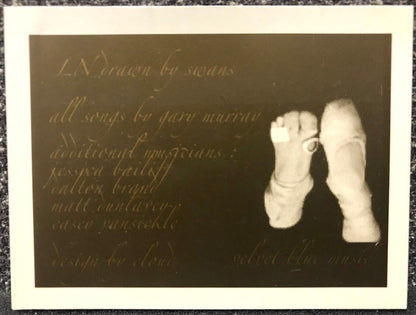 LN drawn by swans
all songs by gary murray
additional musicians :
jessica bailiff
dalton brand
matt dunlavey
casey vansickle
design by cloud
velvet blue music